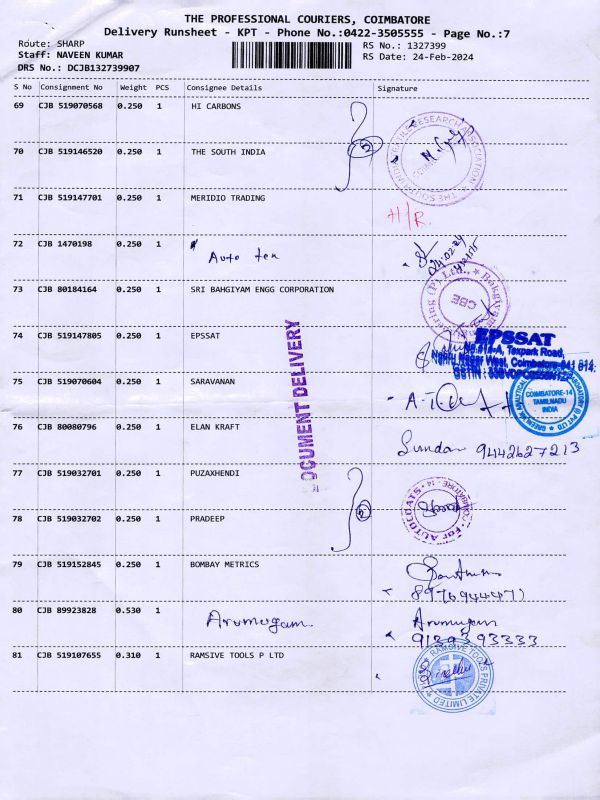 THE PROFESSIONAL COURIERS, COIMBATORE
Delivery Runsheet - KPT - Phone No.:0422-3505555 - Page No.:7
Route: SHARP
Staff: NAVEEN KUMAR
DRS No.: DCJB132739907
RS No.: 1327399
RS Date: 24-Feb-2024
S No Consignment No Weight PCS Consignee Details Signature
69 CJB 519070568 0.250 1 HI CARBONS
70 CJB 519146520 0.250 1 THE SOUTH INDIA
71 CJB 519147701 0.250 1 MERIDIO TRADING
H/R.
72 CJB 1470198 0.250 1 Auto tex
73 CJB 80184164 0.250 1 SRI BAHGIYAM ENGG CORPORATION
CBE
74 CJB 519147805 0.250 1 EPSSAT
EPSSAT
Texpark Road,
Nehru Nagar West, Coimbatore-641 014.
75 CJB 519070604 0.250 1 SARAVANAN
COIMBATORE-14
TAMILNADU
INDIA
DOCUMENT DELIVERY
76 CJB 80080796 0.250 1 ELAN KRAFT
Sundar 9442627213
77 CJB 519032701 0.250 1 PUZAXHENDI
For AUTOCOATS
78 CJB 519032702 0.250 1 PRADEEP
79 CJB 519152845 0.250 1 BOMBAY METRICS
80 CJB 89923828 0.530 1 Arumugam
Arumugam
9139393333
81 CJB 519107655 0.310 1 RAMSIVE TOOLS P LTD
RAMSIVE TOOLS PRIVATE LIMITED